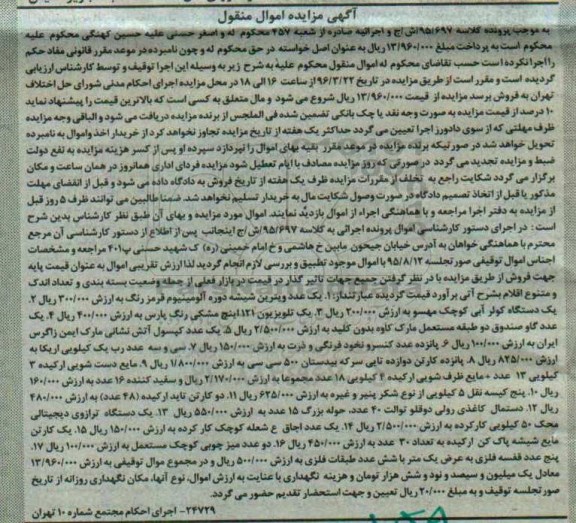 آگهی مزایده اموال منقول
به موجب پرونده کلاسه ۹۵/۶۹۷ش/ج و اجرائیه صادره از شعبه ۴۵۷ محکوم له و اصغر حسنی علیه حسین کهنگی محکوم علیه
محکوم است به پرداخت مبلغ ۱۳/۹۶۰/۰۰۰ ریال به عنوان اصل خواسته در حق محکوم له و چون نامبرده در موعد مقرر قانونی مفاد حکم
را اجرا نکرده است حسب تقاضای محکوم له اموال منقول محکوم علیه به شرح زیر به وسیله این اجرا توقیف و توسط کارشناس ارزیابی
گردیده است و مقرر است از طریق مزایده در تاریخ ۹۶/۳/۲۲ از ساعت ۱۶ الی ۱۸ در محل مزایده اجرای احکام مدنی شورای حل اختلاف
تهران به فروش برسد مزایده از قیمت ۱۳/۹۶۰/۰۰۰ ریال شروع می شود و مال متعلق به کسی است که بالاترین قیمت را پیشنهاد نماید
۱۰ درصد از قیمت مزایده به صورت وجه نقد یا چک بانکی تضمین شده فی المجلس از برنده مزایده دریافت می شود و الباقی وجه مزایده
ظرف مهلتی که از سوی دادورز اجرا تعیین می گردد حداکثر یک هفته از تاریخ مزایده تجاوز نخواهد کرد از خریدار اخذ و اموال به نامبرده
تحویل خواهد شد در صورتیکه برنده مزایده در موعد مقرر بقیه بهای اموال را نپردازد سپرده او پس از کسر هزینه مزایده به نفع دولت
ضبط و مزایده تجدید می گردد در صورتی که روز مزایده مصادف با ایام تعطیل شود مزایده فردای اداری همانروز در همان ساعت و مکان
برگزار می گردد شکایت راجع به تخلف از مقررات مزایده ظرف یک هفته از تاریخ فروش به دادگاه داده می شود و قبل از انقضای مهلت
مذکور یا قبل از اتخاذ تصمیم دادگاه در صورت وصول شکایت مال به خریدار تسلیم نخواهد شد. ضمنا طالبین می توانند ظرف ۵ روز قبل
از مزایده به دفتر اجرا مراجعه و با هماهنگی اجراء از اموال بازدید نمایند. اموال مورد مزایده و بهای آن طبق نظر کارشناس بدین شرح
است: در اجرای دستور کارشناسی اموال پرونده اجرائی به کلاسه ۹۵/۶۹۷ش/ج اینجانب پس از اطلاع از دستور کارشناسی آن مرجع
محترم با هماهنگی خواهان به آدرس خیابان جیحون مابین خ هاشمی و خ امام خمینی (ره) ک شهید حسنی پ۴۰۱ مراجعه و مشخصات
اجناس اموال توقیفی صورتجلسه ۹۵/۸/۱۲ با اموال موجود تطبیق و بررسی لازم انجام گردید لذا ارزش تقریبی اموال به عنوان قیمت پایه
جهت فروش از طریق مزایده با در نظر گرفتن جمیع جهات تاثیر گذار در قیمت در بازار فعلی از جمله وضعیت بسته بندی و تعداد اندک
و متنوع اقلام بشرح آتی برآورد قیمت گردیده عبارتنداز: ۱. یک عدد ویترین شیشه دوره آلومینیوم قرمز رنگ به ارزش ۳۰۰/۰۰۰ ریال ۲.
یک دستگاه کولر آبی کوچک مهسو به ارزش ۲۰۰/۰۰۰ ریال ۳. یک تلویزیون ۲۱اینچ مشکی رنگ پارس به ارزش ۴۰۰/۰۰۰ ریال ۴. یک
عدد گاو صندوق دو طبقه مستعمل مارک کاوه بدون کلید به ارزش ۲/۵۰۰/۰۰۰ ریال ۵. یک عدد کپسول آتش نشانی مارک ایمن زاگرس
ایران به ارزش ۱۰۰/۰۰۰ ریال ۶. پانزده عدد کنسرو نخود فرنگی و ذرت به ارزش ۱۵۰/۰۰۰ ریال ۷. سی و سه عدد رب یک کیلویی اریکا به
ارزش ۸۲۵/۰۰۰ ریال ۸. پانزده کارتن دوازده تایی سرکه بیدستان ۵۰۰ سی سی به ارزش ۱/۸۰۰/۰۰۰ ریال ۹. مایع دست شویی ارکیده ۳
کیلویی ۱۳ عدد + مایع ظرف شویی ارکیده ۴ کیلویی ۱۸ عدد مجموعا به ارزش ۲/۱۷۰/۰۰۰ ریال و سفید کننده ۱۶ عدد به ارزش ۱۶۰/۰۰۰
ریال ۱۰. پنج کیسه نقل ۵ کیلویی از نوع شکر پنیر و غیره به ارزش ۶۲۵/۰۰۰ ریال ۱۱. دو کارتن تاید ارکیده (۴۸ عدد) به ارزش ۴۸۰/۰۰۰
ریال ۱۲. دستمال کاغذی رولی دوقلو توالت ۴۰ عدد، حوله بزرگ ۱۵ عدد به ارزش ۵۵۰/۰۰۰ ریال ۱۳. یک دستگاه ترازوی دیجیتالی
محک ۵۰ کیلویی کارکرده به ارزش ۲/۵۰۰/۰۰۰ ریال ۱۴. یک عدد اجاق ع شعله کوچک کار کرده به ارزش ۱۵۰/۰۰۰ ریال ۱۵. یک کارتن
مایع شیشه پاک کن ارکیده به تعداد ۳۰ عدد به ارزش ۴۵۰/۰۰۰ ریال ۱۶. دو عدد میز چوبی کوچک مستعمل به ارزش ۱۰۰/۰۰۰ ریال ۱۷.
پنج عدد قفسه فلزی به عرض یک متر با شش عدد طبقات فلزی به ارزش ۵۰۰/۰۰۰ ریال و در مجموع موال توقیفی به ارزش ۱۳/۹۶۰/۰۰۰
معادل یک میلیون و سیصد و نود و شش هزار تومان و هزینه نگهداری با عنایت به ارزش اموال، نوع آنها، مکان نگهداری روزانه از تاریخ
صورتجلسه توقیف و به مبلغ ۲۰/۰۰۰ ریال تعیین و جهت استحضار تقدیم حضور می گردد.
۲۴۷۲۹- اجرای احکام مجتمع شماره ۱۰ تهران